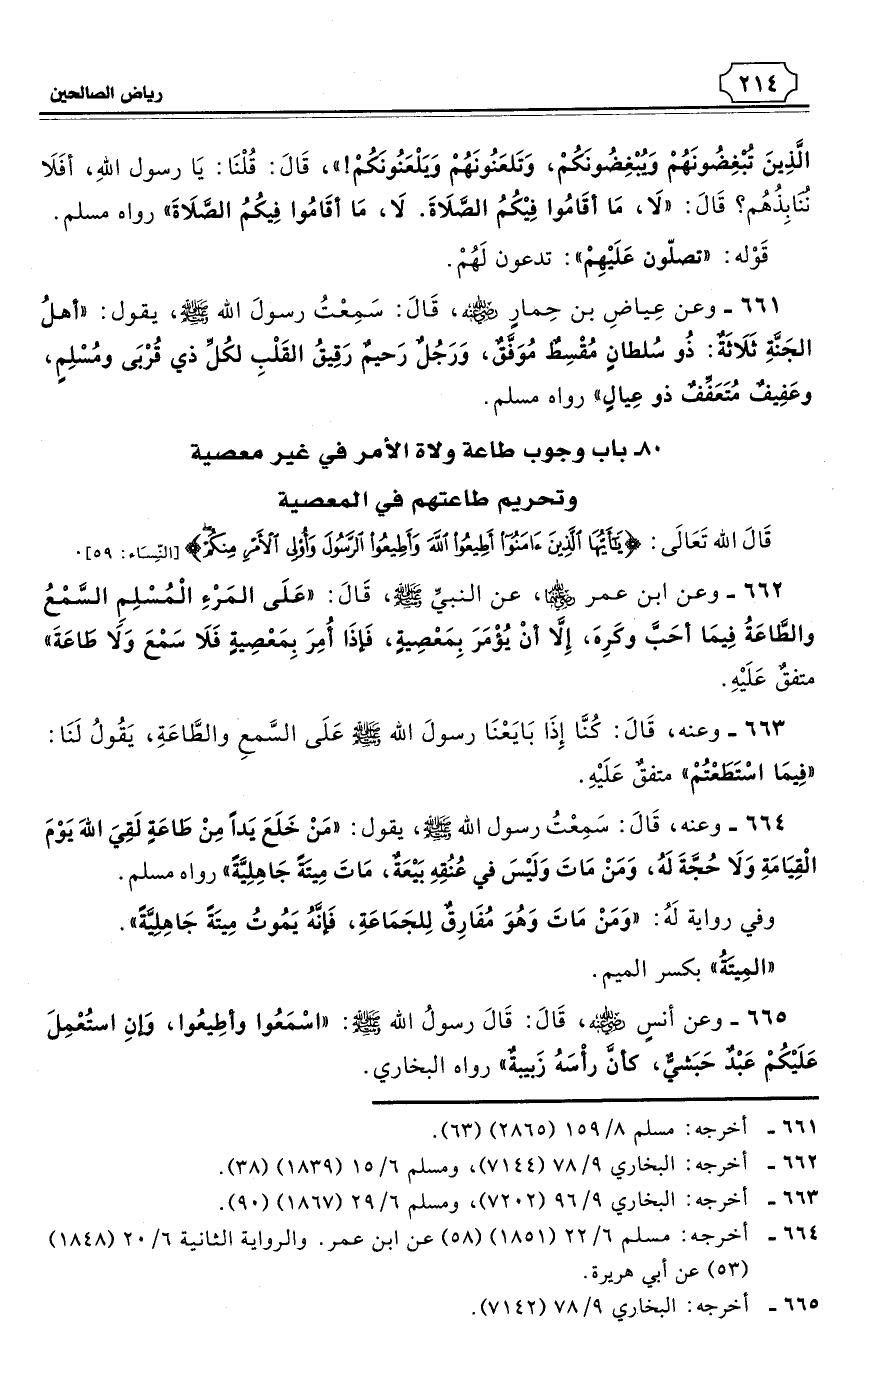 ٢١٤
رياض الصالحين
الَّذِينَ تُبْغِضُونَهُمْ وَيُبْغِضُونَكُمْ، وَتَلعَنُونَهُمْ وَيَلْعَنُونَكُمْ!»، قَالَ: قُلْنَا: يَا رسول اللهِ، أفَلَا
نُنَابِذُهُم؟ قَالَ: «لَا، مَا أقَامُوا فِيْكُمُ الصَّلَاةَ. لَا، مَا أقَامُوا فِيكُمُ الصَّلَاةَ» رواه مسلم.
قَوْله: «تصلّون عَلَيْهِمْ»: تدعون لَهُمْ.
٦٦١ ـ وعن عِياضِ بن حِمارٍ ﷺ، قَالَ: سَمِعْتُ رسولَ الله ﷺ، يقول: «أهلُ
الجَنَّةِ ثَلَاثَةٌ: ذُو سُلطانٍ مُقْسِطٌ مُوَفَّقٌ، وَرَجُلٌ رَحيمٌ رَقِيقُ القَلْبِ لكُلِّ ذي قُرْبَى ومُسْلِمٍ،
وعَفِيفٌ مُتَعَفِّفٌ ذو عِيالٍ» رواه مسلم.
٨٠ـ باب وجوب طاعة ولاة الأمر في غير معصية
وتحريم طاعتهم في المعصية
قَالَ الله تَعَالَى: ﴿يَٰٓأَيُّهَا ٱلَّذِينَ ءَامَنُوٓا۟ أَطِيعُوا۟ ٱللَّهَ وَأَطِيعُوا۟ ٱلرَّسُولَ وَأُو۟لِى ٱلْأَمْرِ مِنكُمْ﴾ [النِّسَاء: ٥٩].
٦٦٢ ـ وعن ابن عمر ﵄، عن النبيِّ ﷺ، قَالَ: «عَلَى المَرْءِ الْمُسْلِمِ السَّمْعُ
والطَّاعَةُ فِيمَا أحَبَّ وكَرِهَ، إِلَّا أنْ يُؤْمَرَ بِمَعْصِيةٍ، فَإذَا أُمِرَ بِمَعْصِيةٍ فَلَا سَمْعَ وَلَا طَاعَةَ»
متفقٌ عَلَيْهِ.
٦٦٣ ـ وعنه، قَالَ: كُنَّا إِذَا بَايَعْنَا رسولَ الله ﷺ عَلَى السَّمعِ والطَّاعَةِ، يَقُولُ لَنَا:
«فِيمَا اسْتَطَعْتُمْ» متفقٌ عَلَيْهِ.
٦٦٤ ـ وعنه، قَالَ: سَمِعْتُ رسول الله ﷺ، يقول: «مَنْ خَلَعَ يَداً مِنْ طَاعَةٍ لَقِيَ اللهَ يَوْمَ
الْقِيَامَةِ وَلَا حُجَّةَ لَهُ، وَمَنْ مَاتَ وَلَيْسَ في عُنُقِهِ بَيْعَةٌ، مَاتَ مِيتَةً جَاهِلِيَّةً» رواه مسلم.
وفي رواية لَهُ: «وَمَنْ مَاتَ وَهُوَ مُفَارِقٌ لِلجَمَاعَةِ، فَإنَّهُ يَمُوتُ مِيتَةً جَاهِلِيَّةً».
«المِيتَةُ» بكسر الميم.
٦٦٥ ـ وعن أنسٍ ﵁، قَالَ: قَالَ رسولُ الله ﷺ: «اسْمَعُوا وأطِيعُوا، وَإنِ استُعْمِلَ
عَلَيْكُمْ عَبْدٌ حَبَشيٌّ، كأنَّ رأْسَهُ زَبيبةٌ» رواه البخاري.
٦٦١ ـ أخرجه: مسلم ٨/ ١٥٩ (٢٨٦٥) (٦٣).
٦٦٢ ـ أخرجه: البخاري ٩/ ٧٨ (٧١٤٤)، ومسلم ٦/ ١٥ (١٨٣٩) (٣٨).
٦٦٣ ـ أخرجه: البخاري ٩/ ٩٦ (٧٢٠٢)، ومسلم ٦/ ٢٩ (١٨٦٧) (٩٠).
٦٦٤ ـ أخرجه: مسلم ٦/ ٢٢ (١٨٥١) (٥٨) عن ابن عمر. والرواية الثانية ٦/ ٢٠ (١٨٤٨)
(٥٣) عن أبي هريرة.
٦٦٥ ـ أخرجه: البخاري ٩/ ٧٨ (٧١٤٢).